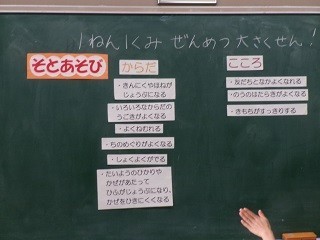 1ねん1くみ ぜんめつ大さくせん!
そとあそび
からだ
・きんにくやほねが
じょうぶになる
・いろいろなからだの
うごきがよくなる
・よくねむれる
・ちのめぐりがよくなる
・しょくよくがでる
・たいようのひかりや
かぜがあたって
ひふがじょうぶになり、
かぜをひきにくくなる
こころ
・友だちとなかよくなれる
・のうのはたらきがよくなる
・きもちがすっきりする